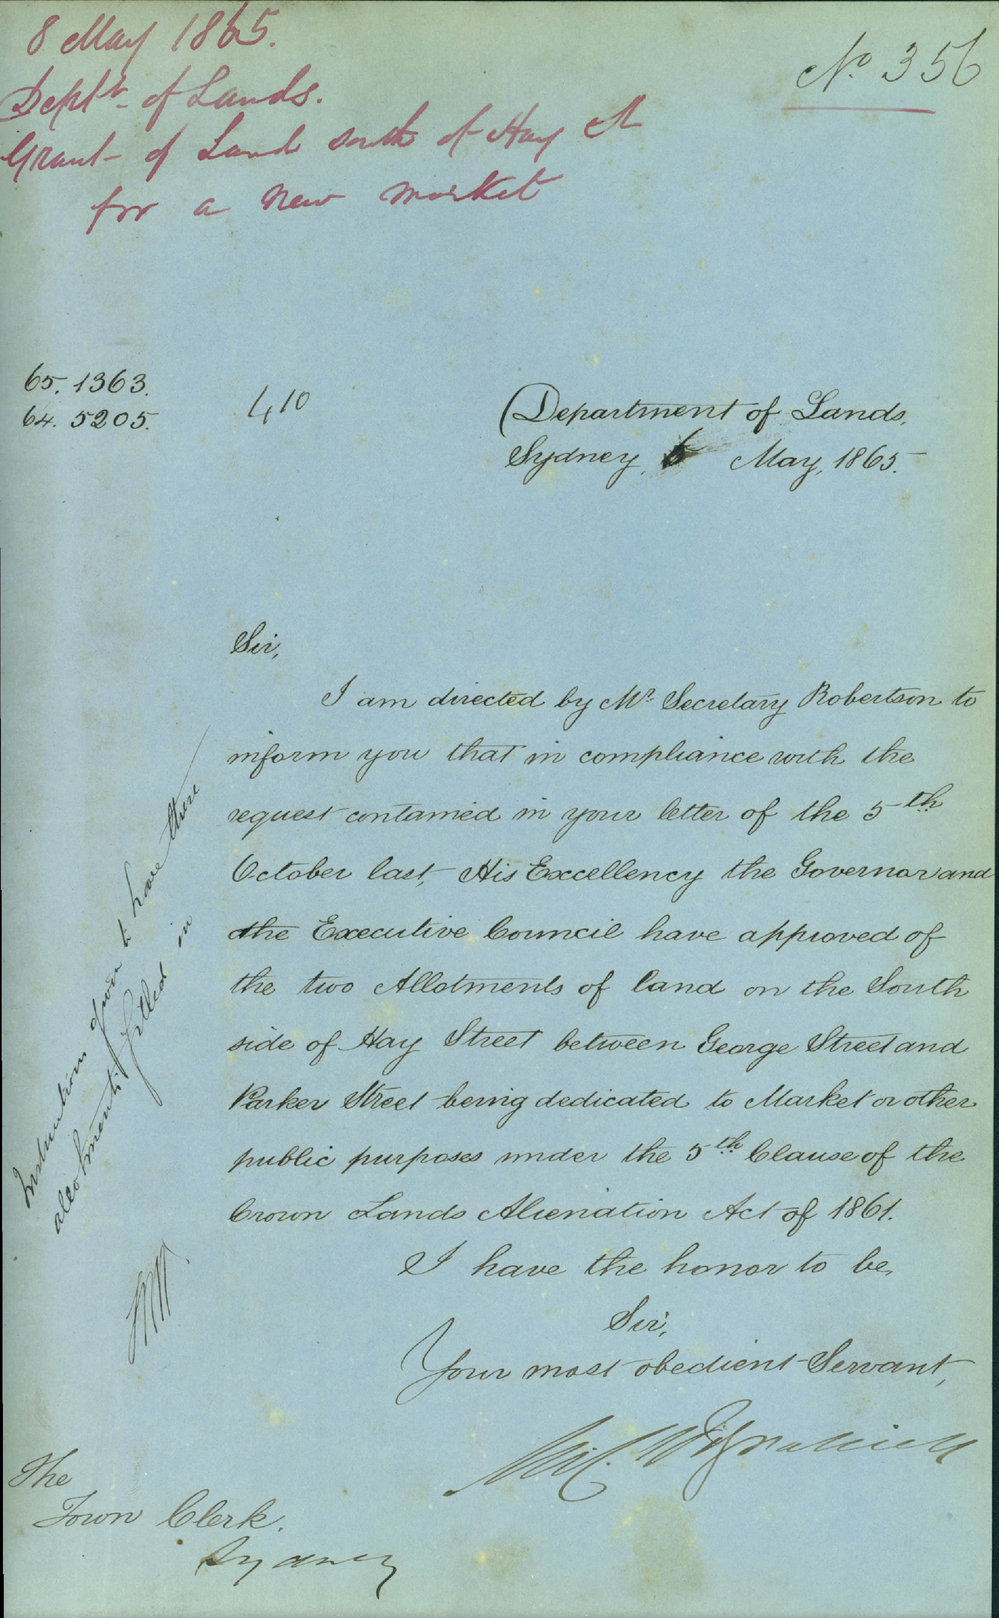 8 May 1865.
Deptt of Lands.
Grant of Land south of Hay St
for a new market
No 356
65. 1363.
64. 5205.
410
Department of Lands,
Sydney, 6 May, 1865.
Sir,
I am directed by Mr. Secretary Robertson to
inform you that in compliance with the
request contained in your letter of the 5th
October last, His Excellency the Governor and
the Executive Council have approved of
the two Allotments of land on the South
side of Hay Street between George Street and
Parker Street being dedicated to Market or other
public purposes under the 5th Clause of the
Crown Lands Alienation Act of 1861.
I have the honor to be,
Sir,
Your most obedient Servant,
Mic. Fitzpatrick
The
Town Clerk.
Sydney
Instructions given to have these
allotments filled in